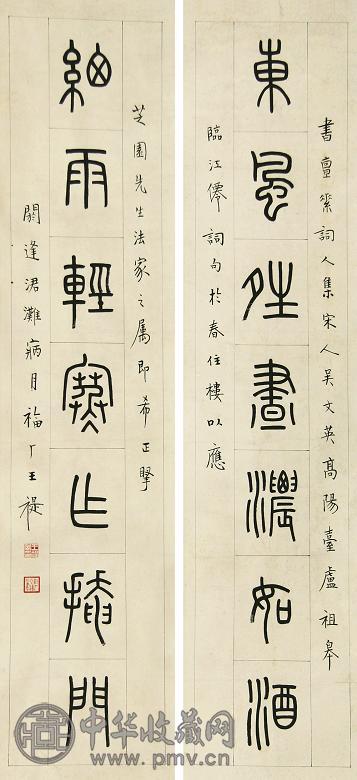 東風夝晝濃如酒
書亶素詞人集宋人吳文英高陽臺盧祖皋
臨江僊詞句於春住樓以應
細雨輕寒乍掩門
芝園先生法家之属即希正
閼逢涒灘病月福厂王禔
中华收藏网
www.pmv.cn